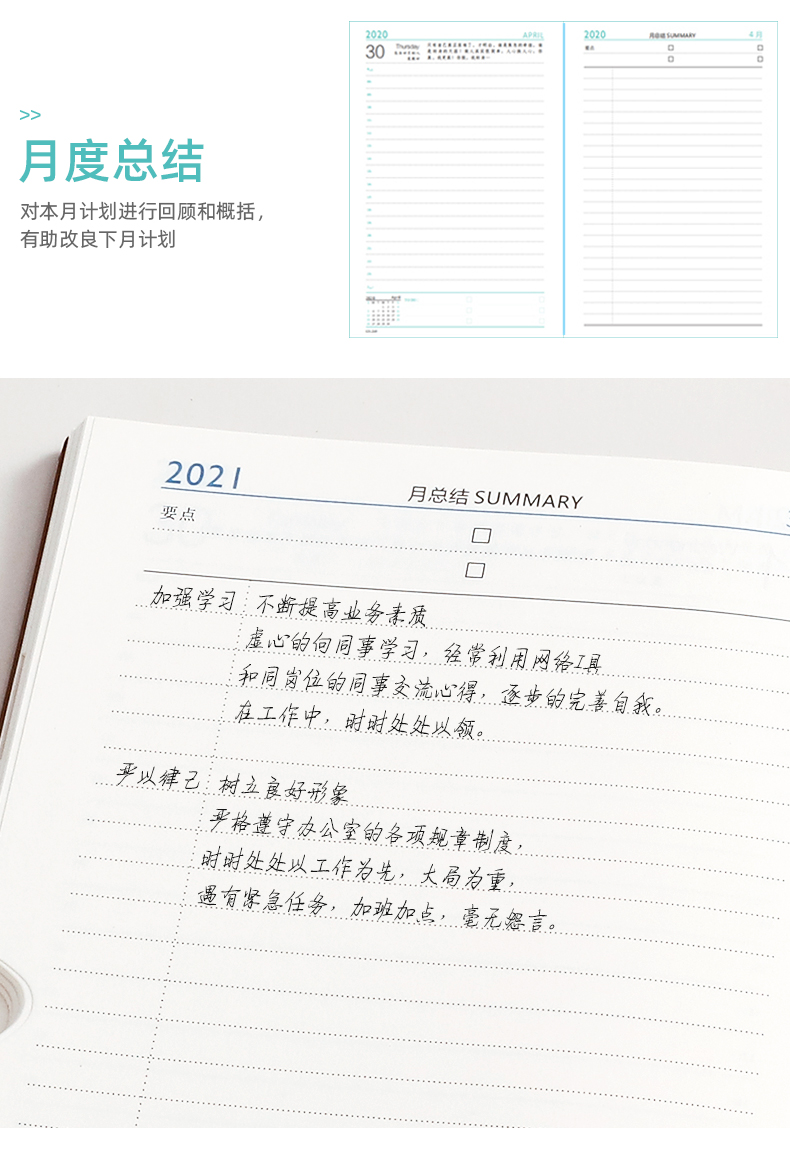 >>
月度总结
对本月计划进行回顾和概括,
有助改良下月计划
2020
APRIL
30
Thursday
2020
月总结 SUMMARY
4 月
要点
2021
月总结 SUMMARY
要点
加强学习 不断提高业务素质
虚心的向同事学习，经常利用网络工具
和同岗位的同事交流心得，逐步的完善自我。
在工作中，时时处处以领。
严以律己 树立良好形象
严格遵守办公室的各项规章制度，
时时处处以工作为先，大局为重，
遇有紧急任务，加班加点，毫无怨言。